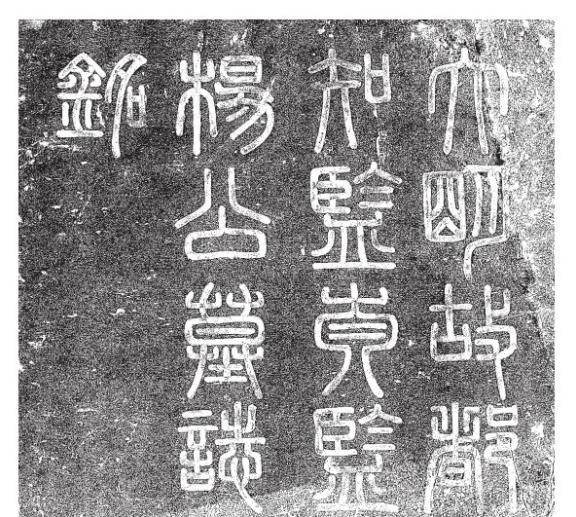 大明故都
知監監
楊公墓誌
銘